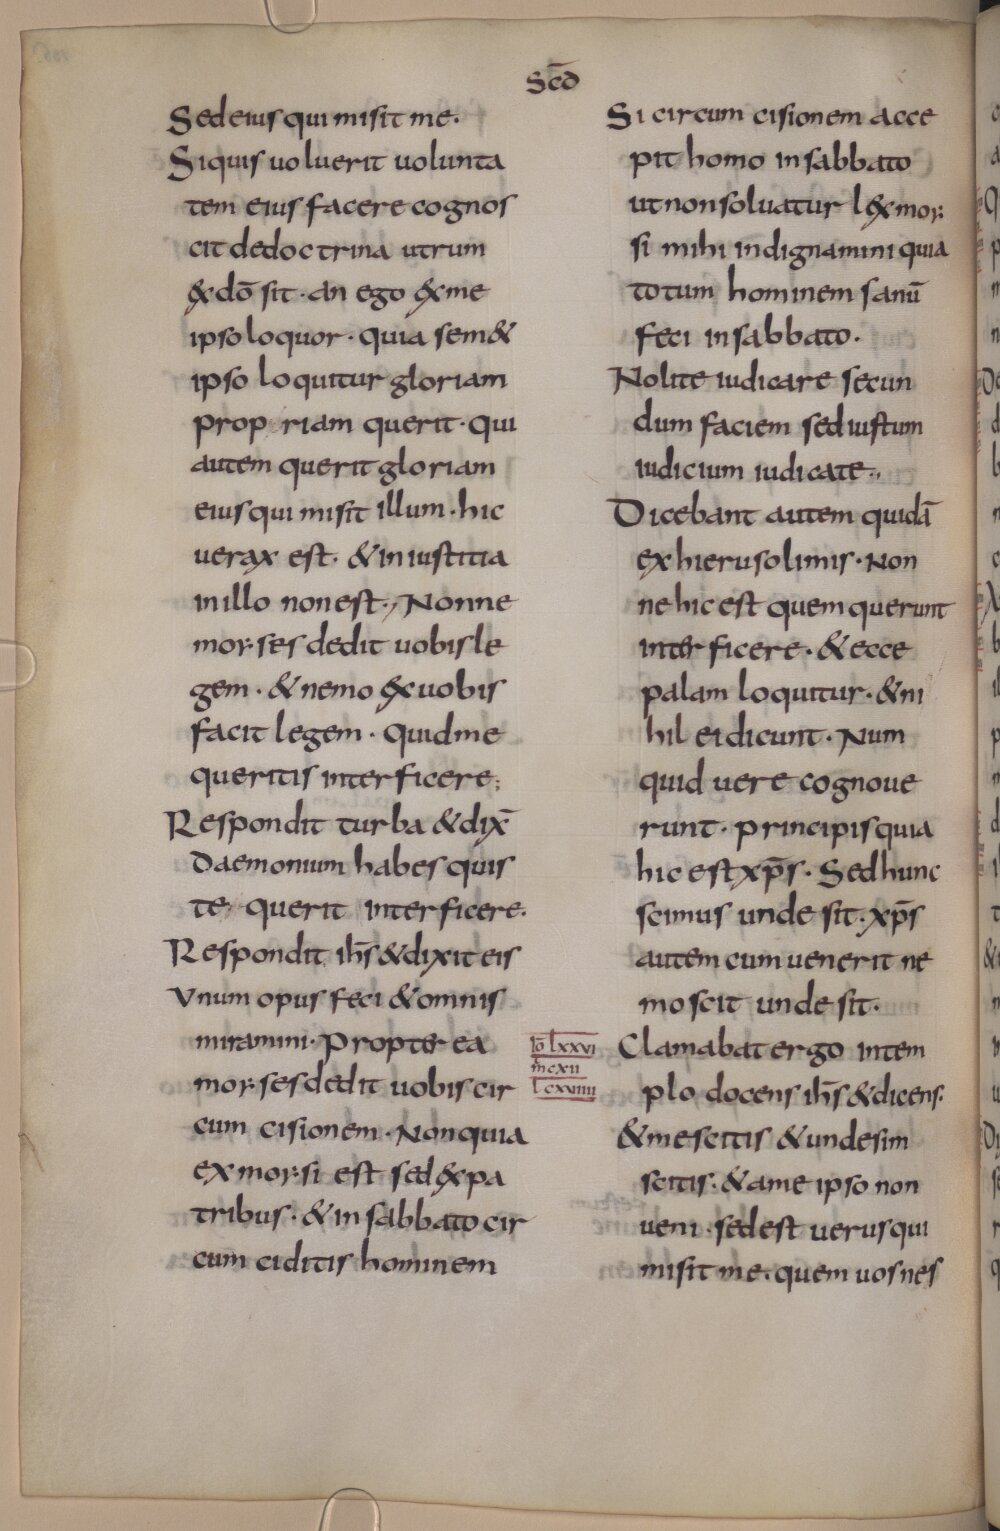 Scd̄
Sed eius qui misit me.
Siquis uoluerit uolunta
tem eius facere cognos
cit de doctrina utrum
ex dō sit · an ego ex me
ipso loquor · quia sem&
ipso loquitur gloriam
propriam querit · qui
autem querit gloriam
eius qui misit illum · hic
uerax est · & iniustitia
in illo non est ., Nonne
moyses dedit uobis le
gem · & nemo ex uobis
facit legem · Quid me
queritis interficere ;
Respondit turba & dix̄
Daemonium habes quis
te querit interficere.
Respondit ih̄s & dixit eis
Vnum opus feci & omnis
miramini · Propter ea
moyses dedit uobis cir
cum cisionem · Non quia
ex moysi est sed ex pa
tribus · & in sabbato cir
cum ciditis hominem
Si circum cisionem acce
pit homo in sabbato
ut non soluatur lex moy
si mihi indignamini quia
totum hominem sanū
feci in sabbato ·
Nolite iudicare secun
dum faciem sed iustum
iudicium iudicate .,
Dicebant autem quidā
ex hierusolimis · Non
ne hic est quem querunt
interficere · & ecce
palam loquitur · & ni
hil ei dicunt · Num
quid uere cognoue
runt · principis quia
hic est xp̄s · Sed hunc
scimus unde sit · xp̄s
autem cum uenerit ne
mo scit unde sit ·
Iō lxxvi
m̄ cxii
l cxviiii
Clamabat ergo in tem
plo docens ih̄s & dicens ·
& me scitis & unde sim
scitis · & a me ipso non
ueni · sed est uerus qui
misit me · quem uos nes